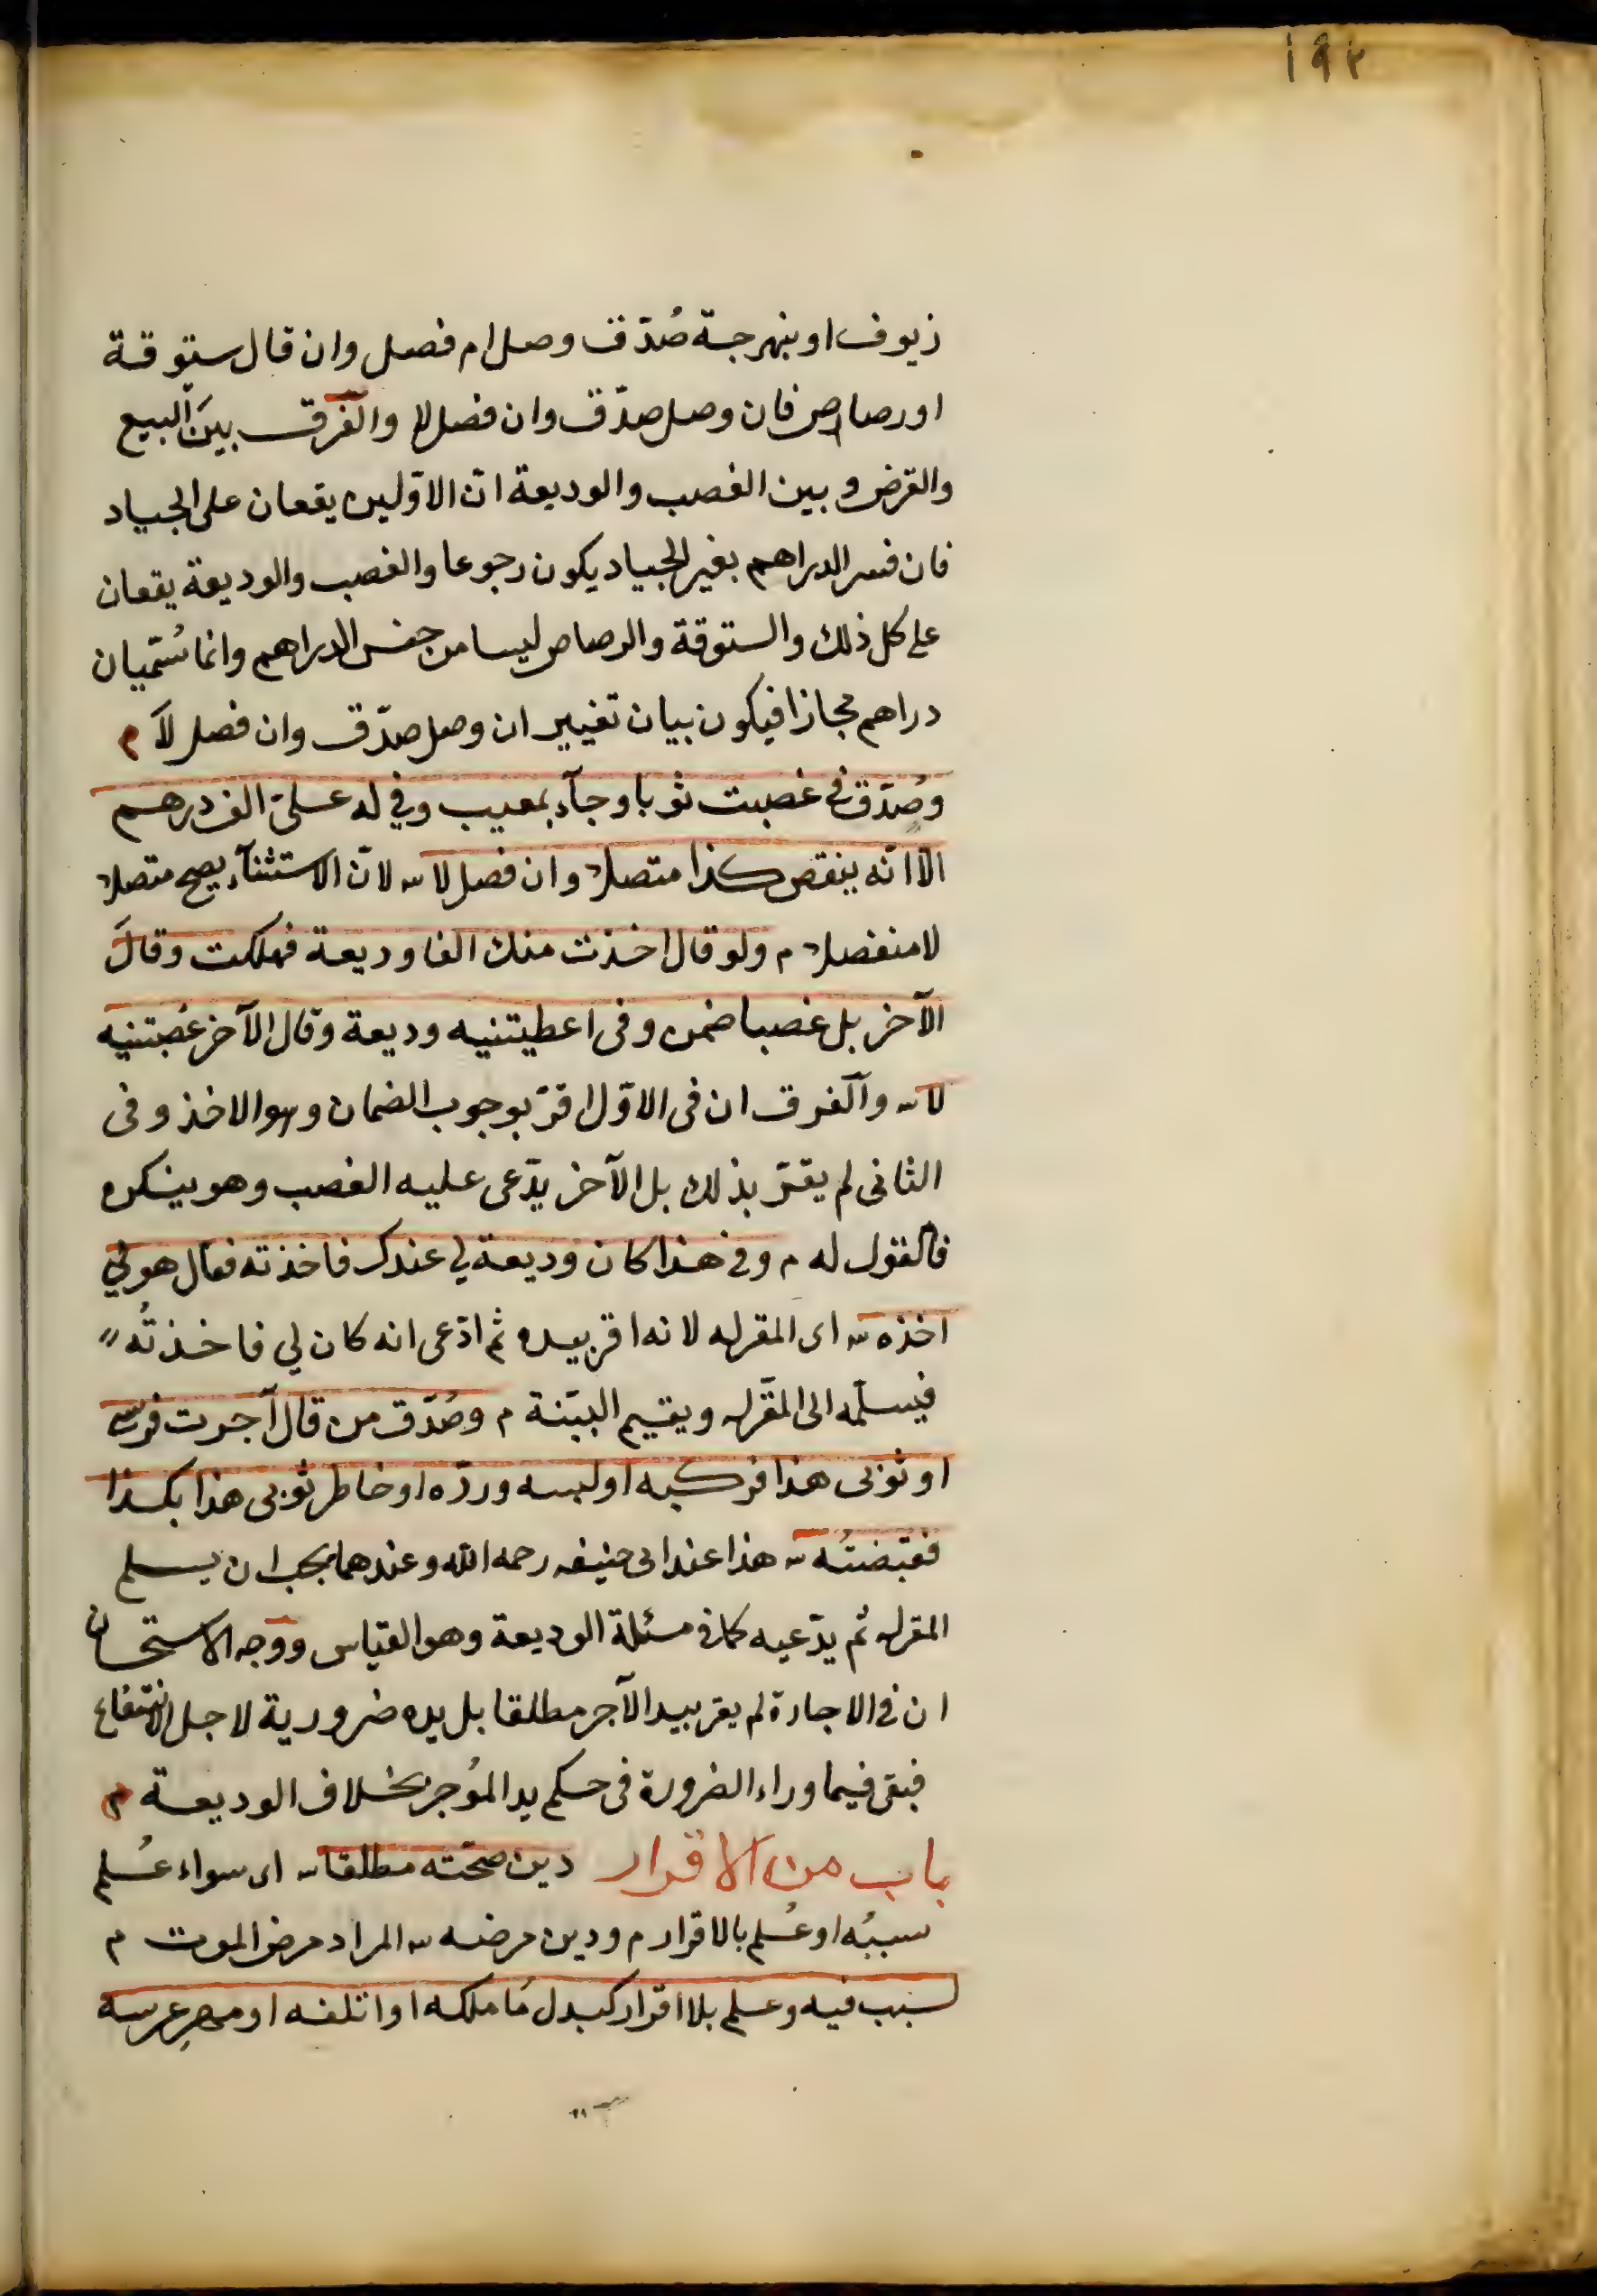 ١٩٢
زيوف او بنهرجة صُدّق وصل ام فصل وان قال ستوقة
او رصاص فان وصل صدّق وان فصل لا والفرق بين البيع
والقرض وبين الغصب والوديعة انّ الاوّلين يقعان على الجياد
فان فسر الدراهم بغير الجياد يكون رجوعا والغصب والوديعة يقعان
على كل ذلك والستوقة والرصاص ليسا من جنس الدراهم وانما سُمّيان
دراهم مجازا فيكون بيان تغيير ان وصل صدّق وان فصل لا م
وصُدّق في غصبت ثوبا وجآء بمعيب وفي له علىّ الف درهم
الّا انّه ينقص كذا متصلا وان فصل لا ش لانّ الاستثنآء يصح متصلا
لا منفصلا م ولو قال اخذت منك الفا وديعة فهلكت وقال
الآخر بل غصبا ضمن وفى اعطيتنيه وديعة وقال الآخر غصبتنيه
لا ش والفرق ان فى الاوّل اقرّ بوجوب الضمان وهو الاخذ وفى
الثانى لم يقرّ بذلك بل الآخر يدّعى عليه الغصب وهو ينكره
فالقول له م وفي هذا كان وديعة لي عندك فاخذته فقال هو لي
اخذه ش اى المقر له لانه اقر بيده ثم ادّعى انه كان لي فاخذتُه
فيسلّمه الى المقرّ له ويقيم البيّنة م وصُدّق من قال آجرت فرسى
او ثوبى هذا فركبه او لبسه وردّه او خاط ثوبى هذا بكذا
فقبضتُه ش هذا عند ابى حنيفه رحمه الله وعندهما يجب ان يسلم
المقر له ثم يدّعيه كما فى مسئلة الوديعة وهو القياس ووجه الاستحسان
ان فى الاجارة لم يقر بيد الآجر مطلقا بل يده ضرورية لاجل الانتفاع
فبقى فيما وراء الضرورة فى حكم يد المؤجر بخلاف الوديعة م
باب من الاقرار دين صحّته مطلقا ش اى سواء عُلم
سببُه او عُلم بالاقرار م ودين مرضه ش المراد مرض الموت م
لسبب فيه وعلم بلا اقرار كبدل ما ملكه او اتلفه او مهر عرسه